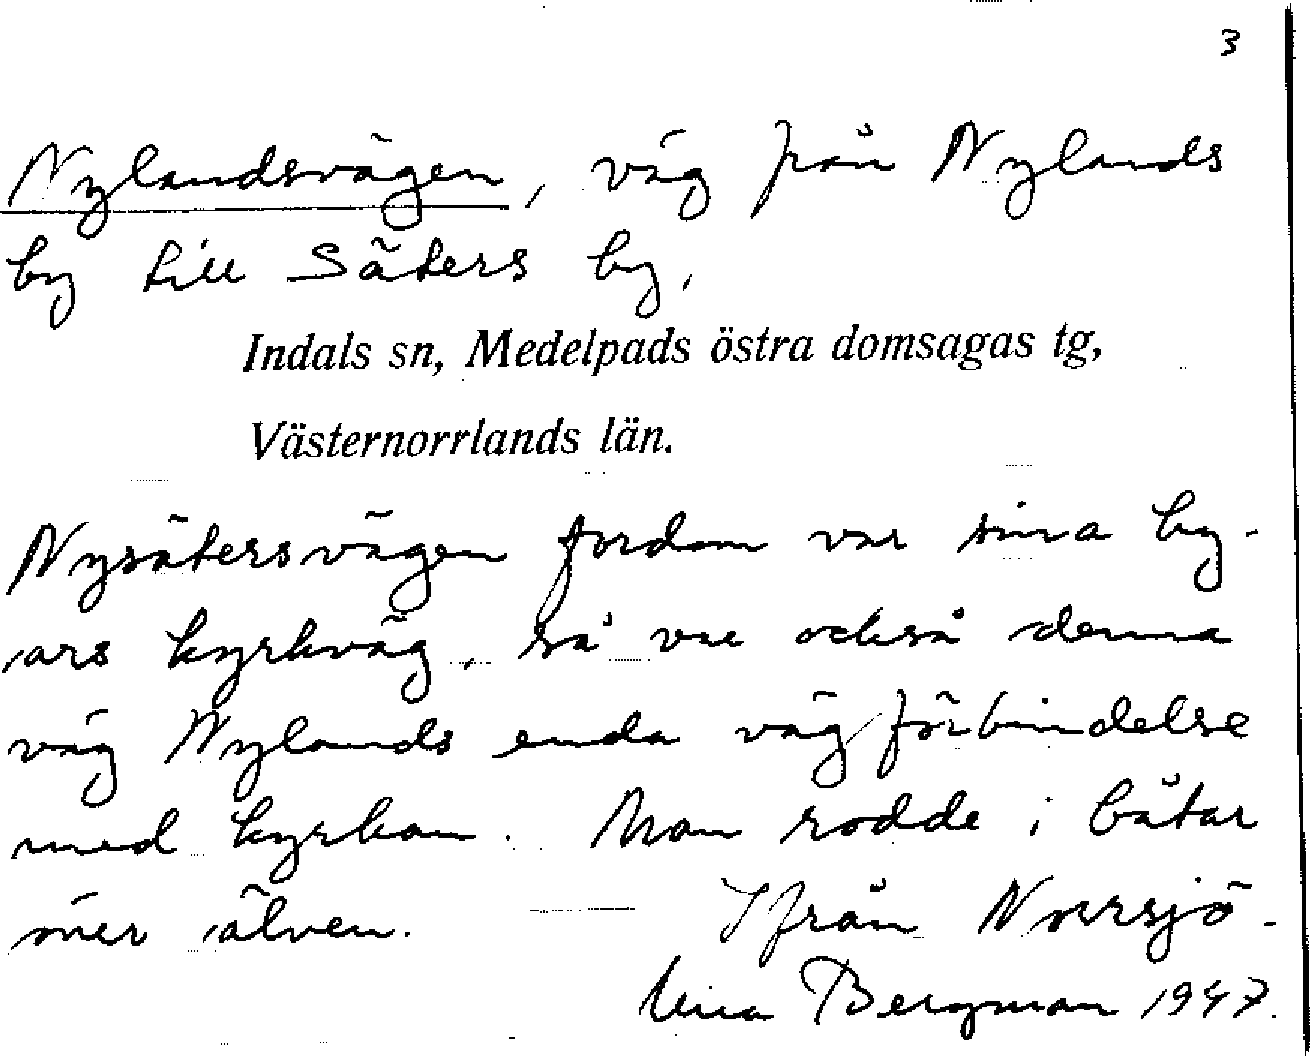 3
Nylandsvägen, väg från Nylands
by till Säters by,
Indals sn, Medelpads östra domsagas tg,
Västernorrlands län.
Nysätersvägen fordom var sina by-
ars kyrkväg, så var också denna
väg Nylands enda vägförbindelse
med kyrkan. Man rodde i båtar
över älven. Ifrån Norrsjö-
Bergman 1947.